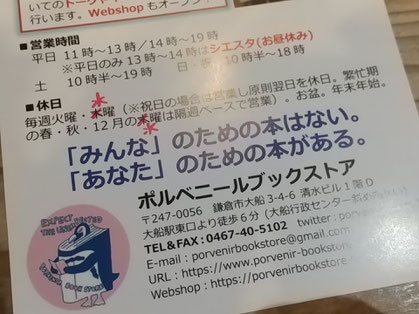 いてのトークや
行います。Webshopもオープン！
■営業時間
平日 11時～13時／14時～19時
※平日のみ13時～14時はシエスタ(お昼休み)
土 10時半～19時 日・祝 10時半～18時
■休日
毎週火曜・水曜（※祝日の場合は営業し原則翌日を休日。繁忙期
の春・秋・12月の水曜は隔週ペースで営業）。お盆。年末年始。
「みんな」のための本はない。
「あなた」のための本がある。
ポルベニールブックストア
〒247-0056 鎌倉市大船3-4-6 清水ビル1階D
大船駅東口より徒歩6分（大船行政センター
TEL&FAX：0467-40-5102 twitter：porve
E-mail：porvenirbookstore@gmail.com
URL：https://www.porvenir-bookstore.
Webshop：https://porvenirbookstore.
EXPECT
THE UNEX
PORVENIR
BOOK STORE